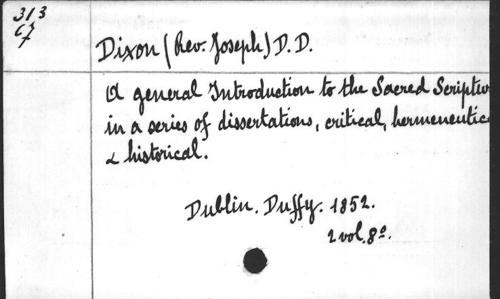 313
C7
Dixon (Rev. Joseph) D. D.
A general Introduction to the Sacred Scriptu
in a series of dissertations, critical, hermeneutic
& historical.
Dublin. Duffy. 1852.
2 vol. 8º.